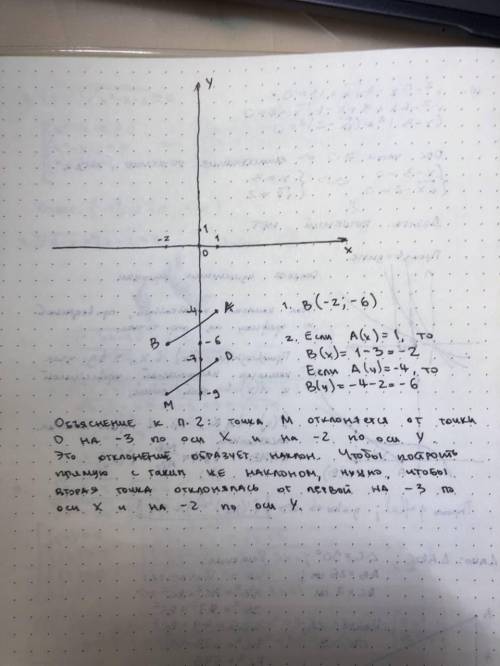 Y
1
-2
0
1
X
-4
A
B
-6
-7
D
M
-9
1. B(-2; -6)
2. Если A(x) = 1, то
B(x) = 1-3 = -2
Если A(y) = -4, то
B(y) = -4-2 = -6
Объяснение к п.2: точка M отклоняется от точки
D на -3 по оси X и на -2 по оси Y.
Это отклонение образует наклон. Чтобы построить
прямую с таким же наклоном, нужно, чтобы
вторая точка отклонялась от первой на -3 по
оси X и на -2 по оси Y.